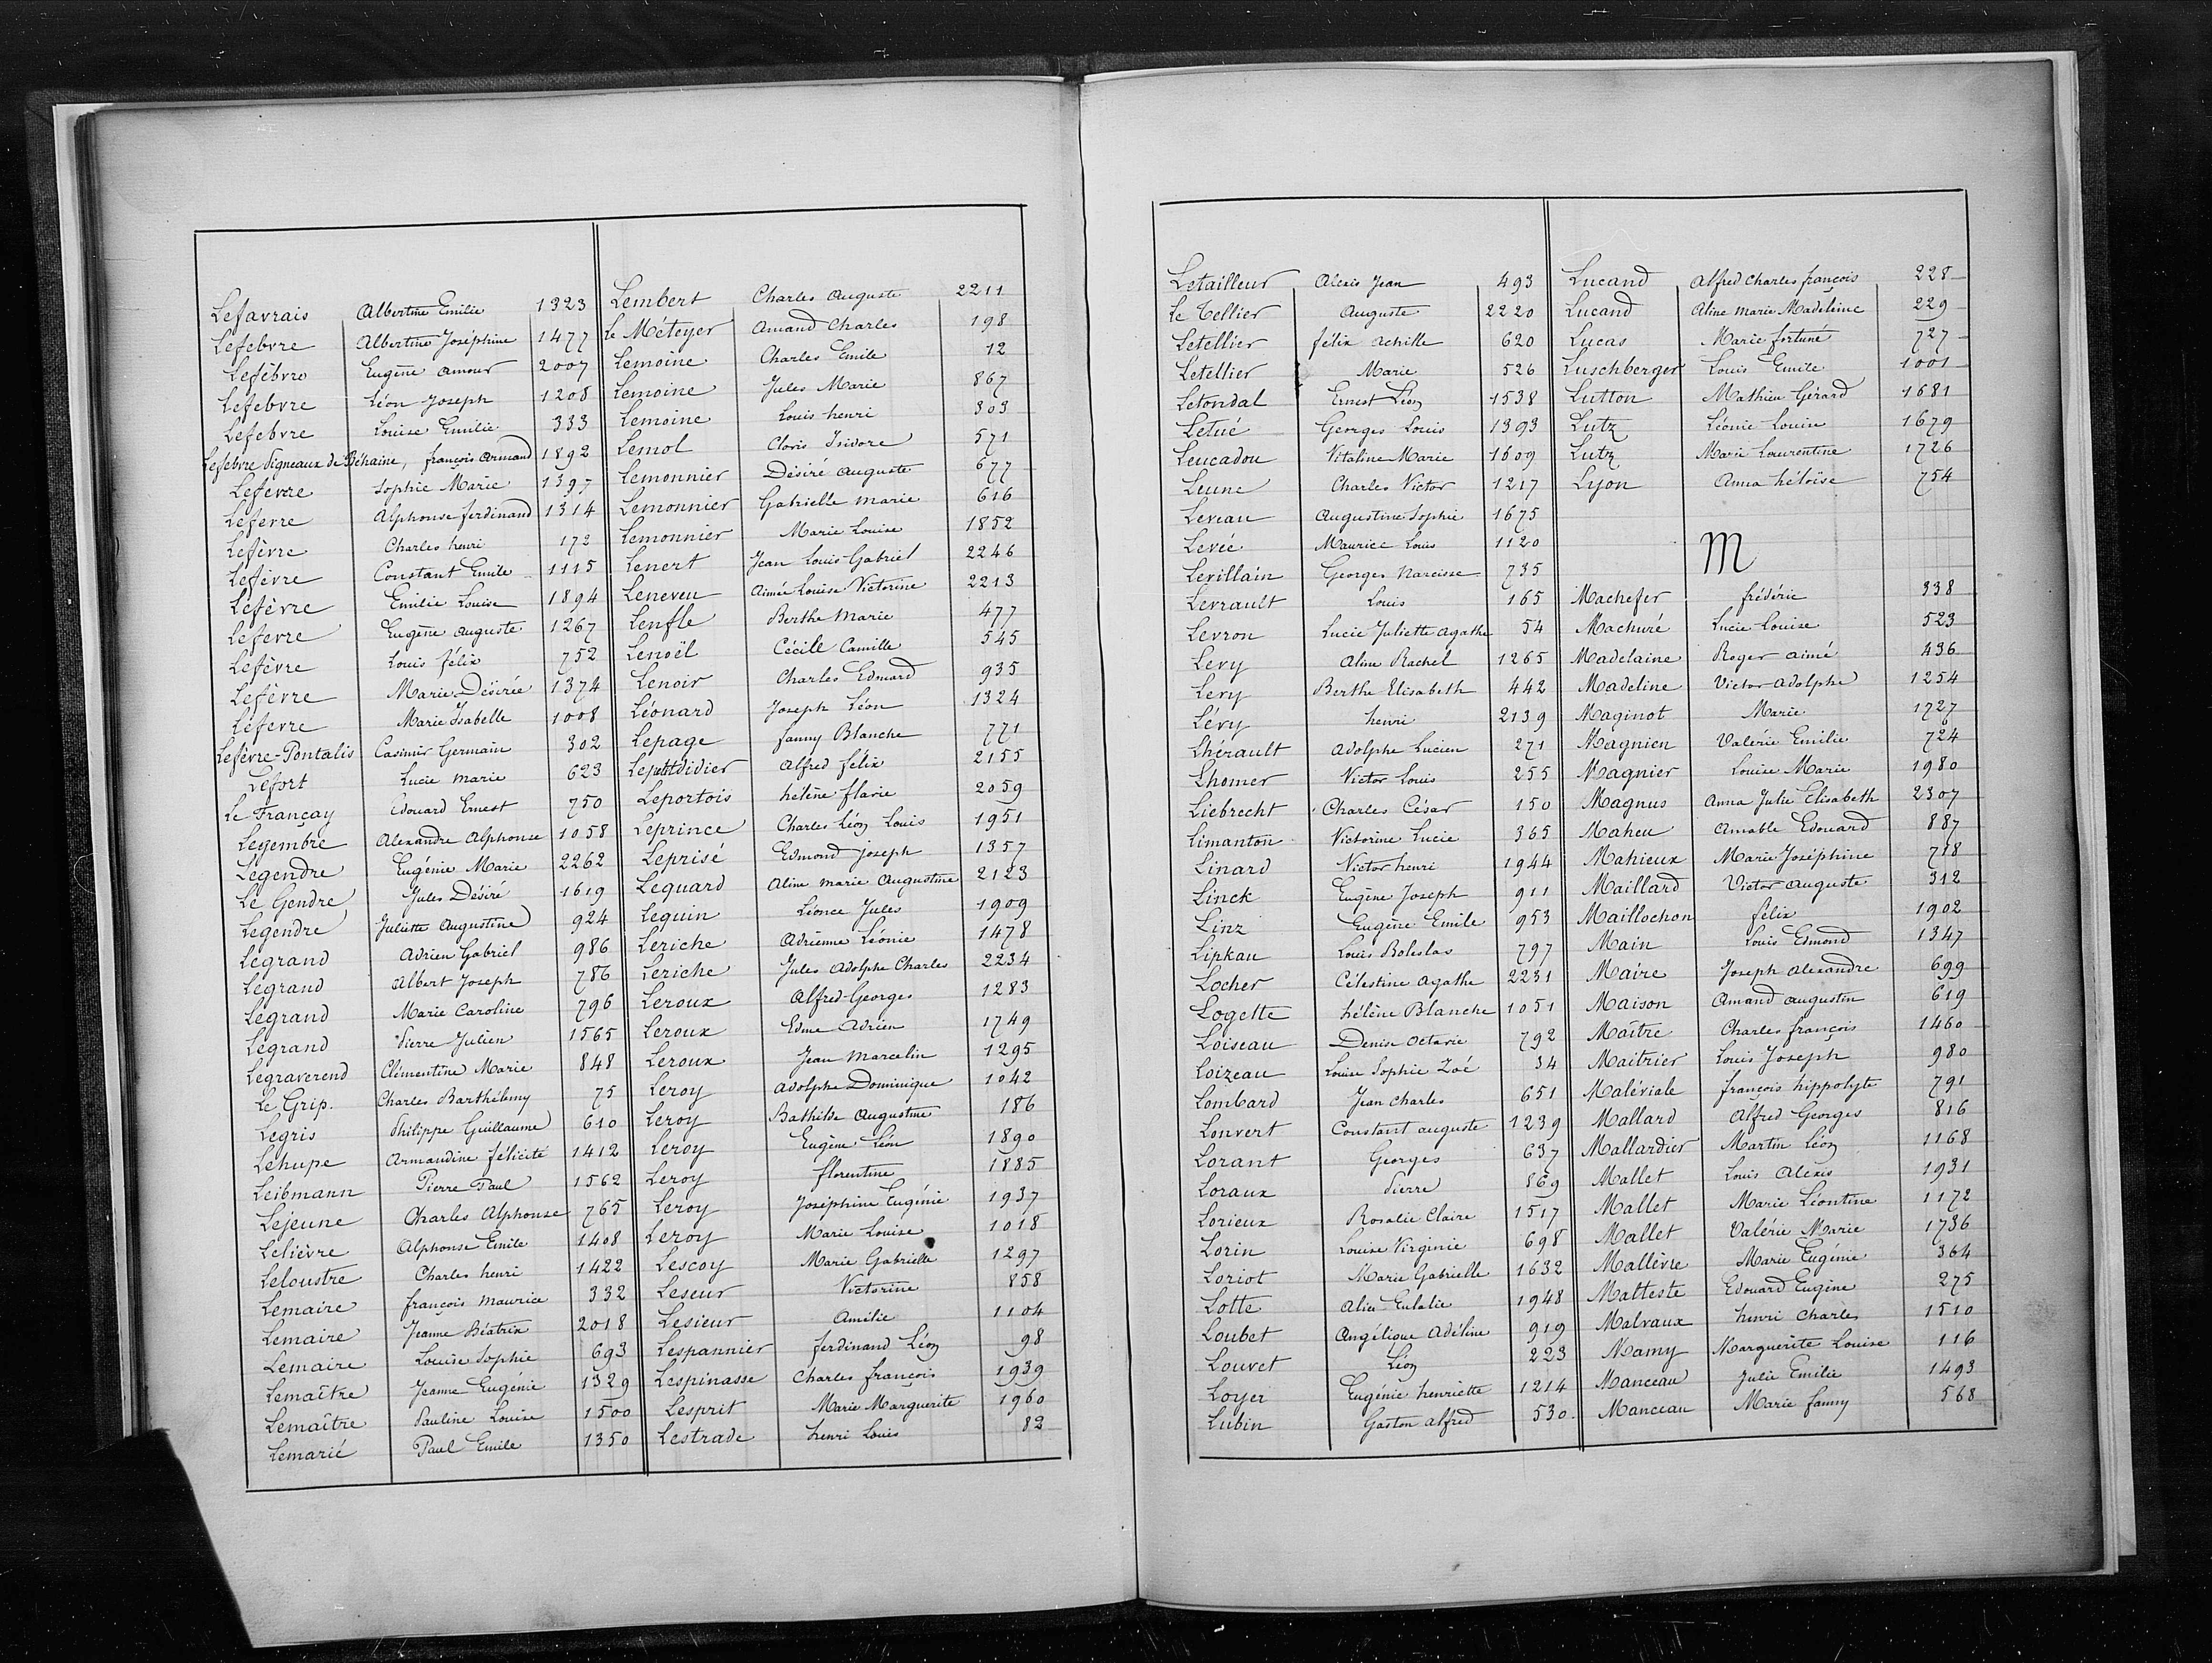 Lefavrais Albertine Emilie 1323
Lefebvre Albertine Joséphine 1477
Lefèbvre Eugène Amour 2007
Lefebvre Léon Joseph 1208
Lefebvre Louise Emilie 333
Lefebvre Vigneaux de Béhaine, françois Armand 1892
Lefevere Sophie Marie 1397
Lefevre Alphonse ferdinand 1314
Lefèvre Charles henri 172
Lefèvre Constant Emile 1115
Lefèvre Emilie Louise 1894
Lefevre Eugène Auguste 1267
Lefèvre Louis félix 752
Lefèvre Marie Désirée 1374
Lefevre Marie Isabelle 1008
Lefèvre-Pontalis Casimir Germain 302
Lefort Lucie Marie 623
Le Françay Edouard Ernest 750
Legembre Alexandre Alphonse 1058
Legendre Eugénie Marie 2262
Le Gendre Jules Désiré 1619
Legendre Juliette Augustine 924
Legrand Adrien Gabriel 986
Legrand Albert Joseph 786
Legrand Marie Caroline 796
Legrand Pierre Julien 1565
Legraverend Clémentine Marie 848
Le Grip. Charles Barthélemy 75
Legris Philippe Guillaume 610
Lehupe Armandine félicité 1412
Leibmann Pierre Paul 1562
Lejeune Charles Alphonse 765
Lelièvre Alphonse Emile 1408
Leloustre Charles henri 1422
Lemaire françois Maurice 332
Lemaire Jeanne Béatrix 2018
Lemaire Louise Sophie 693
Lemaître Jeanne Eugénie 1329
Lemaître Pauline Louise 1500
Lemarié Paul Emile 1350
Lembert Charles Auguste 2211
Le Méteyer Amand Charles 198
Lemoine Charles Emile 12
Lemoine Jules Marie 867
Lemoine Louis henri 303
Lemol Clovis Isidore 571
Lemonnier Désiré Auguste 677
Lemonnier Gabrielle Marie 616
Lemonnier Marie Louise 1852
Lenert Jean Louis Gabriel 2246
Leneveu Aimée Louise Victorine 2213
Lenfle Berthe Marie 477
Lenoël Cécile Camille 545
Lenoir Charles Edmard 935
Léonard Joseph Léon 1324
Lepage fanny Blanche 771
Lepetitdidier Alfred félix 2155
Leportois hélène flavie 2059
Leprince Charles Léon Louis 1951
Leprisé Edmond Joseph 1357
Lequard Aline Marie Augustine 2123
Lequin Léonce Jules 1909
Leriche Adrienne Léonie 1478
Leriche Jules Adolphe Charles 2234
Leroux Alfred Georges 1283
Leroux Edme Adrien 1749
Leroux Jean Marcelin 1295
Leroy Adolphe Dominique 1042
Leroy Bathilde Augustine 186
Leroy Eugène Léon 1890
Leroy florentine 1885
Leroy Joséphine Eugénie 1937
Leroy Marie Louise 1018
Lescoy Marie Gabrielle 1297
Leseur Victorine 858
Lesieur Amélie 1104
Lespannier ferdinand Léon 98
Lespinasse Charles françois 1939
Lesprit Marie Marguerite 1960
Lestrade henri Louis 82
Letailleur Alexis Jean 493
Le Tellier Auguste 2220
Letellier félix Achille 620
Letellier Marie 526
Letondal Ernest Léon 1538
Letué Georges Louis 1393
Leucadou Vitaline Marie 1609
Leune Charles Victor 1217
Leveau Augustine Sophie 1675
Levée Maurice Louis 1120
Levillain Georges Narcisse 735
Levrault Louis 165
Levron Lucie Juliette Agathe 54
Levy Aline Rachel 1265
Levy Berthe Elisabeth 442
Lévy henri 2139
Lhérault Adolphe Lucien 271
Lhomer Victor Louis 255
Liebrecht Charles César 150
Limanton Victorine Lucie 365
Linard Victor henri 1944
Linck Eugène Joseph 911
Linz Eugène Emile 953
Lipkau Louis Boleslas 797
Locher Célestine Agathe 2231
Logette hélène Blanche 1051
Loiseau Denise Octavie 792
Loizeau Louise Sophie Zoé 34
Lombard Jean Charles 651
Lonvert Constant Auguste 1239
Lorant Georges 637
Loraux Pierre 869
Lorieux Rosalie Claire 1517
Lorin Louise Virginie 698
Loriot Marie Gabrielle 1632
Lotte Alice Eulalie 1948
Loubet Angélique Adéline 919
Louvet Léon 223
Loyer Eugénie henriette 1214
Lubin Gaston Alfred 530.
Lucand Alfred Charles françois 228
Lucand Aline Marie Madeleine 229
Lucas Marie fortuné 727
Luschberger Louis Emile 1001
Lutton Mathieu Gérard 1681
Lutz Léonie Louise 1679
Lutz Marie Laurentine 1726
Lyon Anna héloïse 754
M
Machefer frédéric 338
Machuré Lucie Louise 523
Madelaine Roger Aimé 436
Madeline Victor Adolphe 1254
Maginot Marie 1727
Magnien Valérie Emilie 724
Magnier Louise Marie 1980
Magnus Anna Julie Elisabeth 2307
Maheu Amable Edouard 887
Mahieux Marie Joséphine 718
Maillard Victor Auguste 312
Maillochon félix 1902
Main Louis Edmond 1347
Maire Joseph Alexandre 699
Maison Amand Augustin 619
Maître Charles françois 1460
Maitrier Louis Joseph 980
Maléviale françois hippolyte 791
Mallard Alfred Georges 816
Mallardier Martin Léon 1168
Mallet Louis Alexis 1931
Mallet Marie Léontine 1172
Mallet Valérie Marie 1736
Mallèvre Marie Eugénie 364
Malteste Edouard Eugène 275
Malvaux henri Charles 1510
Mamy Marguerite Louise 116
Manceau Julie Emilie 1493
Manceau Marie fanny 568